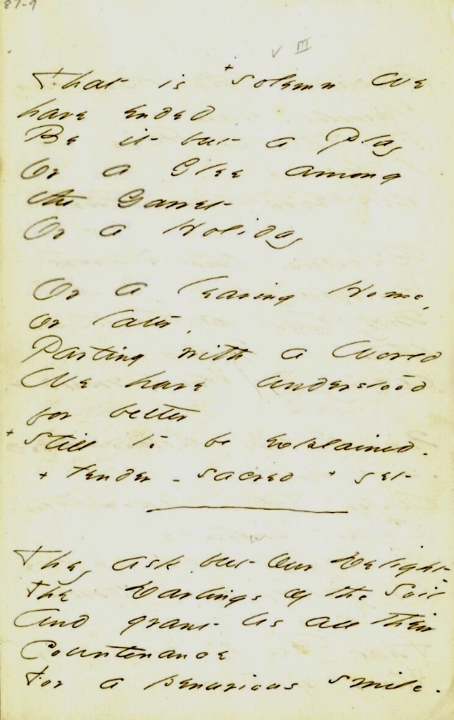 87-9
V III
That is +solemn We
have ended
Be it but a Play
Or a Glee among
the Garret
Or a Holiday

Or a leaving Home,
or later,
Parting with a World
We have understood
for better
+Still to be explained.
+ tender - sacred + set

They ask but Our Delight -
The Darlings of the Soil
And grant Us all Their
Countenance
For a penurious smile.